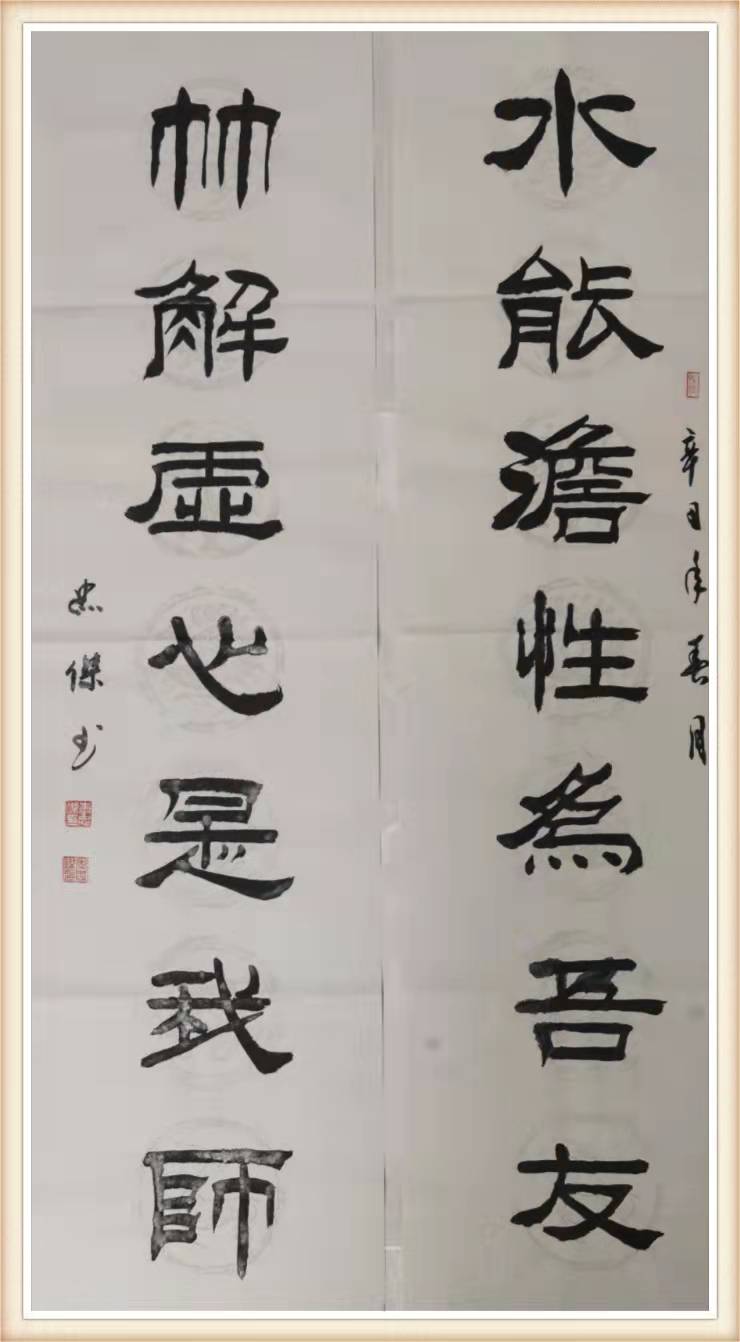 辛丑年春月
水能澹性為吾友
竹解虛心是我師
忠傑书